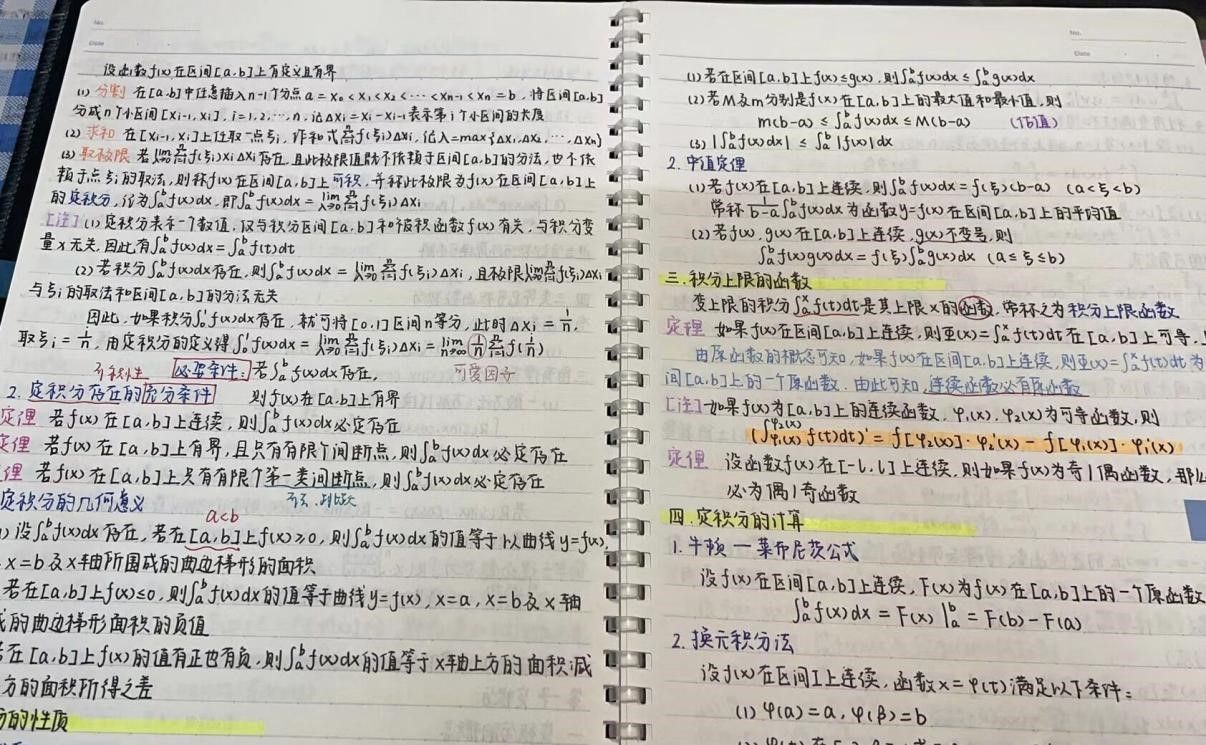 No.
Date
设函数f(x)在区间[a,b]上有定义且有界
(1) 分割 在[a,b]中任意插入n-1个分点 a = x₀ < x₁ < x₂ < ··· < xₙ₋₁ < xₙ = b, 将区间[a,b]
分成n个小区间[xᵢ₋₁, xᵢ], i=1,2,···,n, 记Δxᵢ = xᵢ - xᵢ₋₁表示第i个小区间的长度
(2) 求和 在[xᵢ₋₁, xᵢ]上任取一点ξᵢ, 作和式∑ᵢ₌₁ⁿ f(ξᵢ)Δxᵢ, 记λ=max{Δx₁,Δx₂,···,Δxₙ}
(3) 取极限 若lim λ→0 ∑ᵢ₌₁ⁿ f(ξᵢ)Δxᵢ存在, 且此极限值既不依赖于区间[a,b]的分法, 也不依
赖于点ξᵢ的取法, 则称f(x)在区间[a,b]上可积, 并称此极限为f(x)在区间[a,b]上
的定积分, 记为∫ₐᵇf(x)dx, 即∫ₐᵇf(x)dx = lim λ→0 ∑ᵢ₌₁ⁿ f(ξᵢ)Δxᵢ
[注] (1) 定积分表示一个数值, 仅与积分区间[a,b]和被积函数f(x)有关, 与积分变
量x无关, 因此, 有∫ₐᵇf(x)dx = ∫ₐᵇf(t)dt
(2) 若积分∫ₐᵇf(x)dx存在, 则∫ₐᵇf(x)dx = lim λ→0 ∑ᵢ₌₁ⁿ f(ξᵢ)Δxᵢ, 且极限lim λ→0 ∑ᵢ₌₁ⁿ f(ξᵢ)Δxᵢ
与ξᵢ的取法和区间[a,b]的分法无关
因此, 如果积分∫₀¹f(x)dx存在, 就可将[0,1]区间n等分, 此时Δxᵢ = 1/n,
取ξᵢ = i/n, 由定积分的定义得∫₀¹f(x)dx = lim λ→0 ∑ᵢ₌₁ⁿ f(ξᵢ)Δxᵢ = lim n→∞ 1/n ∑ᵢ₌₁ⁿ f(i/n)
可积性 必要条件: 若∫ₐᵇf(x)dx存在, 可爱因子
2. 定积分存在的充分条件 则f(x)在[a,b]上有界
定理 若f(x)在[a,b]上连续, 则∫ₐᵇf(x)dx必定存在
定理 若f(x)在[a,b]上有界, 且只有有限个间断点, 则∫ₐᵇf(x)dx必定存在
理 若f(x)在[a,b]上只有有限个第一类间断点, 则∫ₐᵇf(x)dx必定存在
可去、跳跃
定积分的几何意义 a<b
) 设∫ₐᵇf(x)dx存在, 若在[a,b]上f(x)≥0, 则∫ₐᵇf(x)dx的值等于以曲线y=f(x),
, x=b及x轴所围成的曲边梯形的面积
若在[a,b]上f(x)≤0, 则∫ₐᵇf(x)dx的值等于曲线y=f(x), x=a, x=b及x轴
成的曲边梯形面积的负值
在[a,b]上f(x)的值有正也有负, 则∫ₐᵇf(x)dx的值等于x轴上方的面积减
方的面积所得之差
分的性质
No.
Date
(1) 若在区间[a,b]上f(x)≤g(x), 则∫ₐᵇf(x)dx ≤ ∫ₐᵇg(x)dx
(2) 若M及m分别是f(x)在[a,b]上的最大值和最小值, 则
m(b-a) ≤ ∫ₐᵇf(x)dx ≤ M(b-a) (估值)
(3) |∫ₐᵇf(x)dx| ≤ ∫ₐᵇ|f(x)|dx
2. 中值定理
(1) 若f(x)在[a,b]上连续, 则∫ₐᵇf(x)dx = f(ξ)(b-a) (a<ξ<b)
常称1/(b-a) ∫ₐᵇf(x)dx为函数y=f(x)在区间[a,b]上的平均值
(2) 若f(x), g(x)在[a,b]上连续, g(x)不变号, 则
∫ₐᵇf(x)g(x)dx = f(ξ)∫ₐᵇg(x)dx (a≤ξ≤b)
三. 积分上限的函数
变上限的积分∫ₐˣf(t)dt是其上限x的函数, 常称之为积分上限函数
定理 如果f(x)在区间[a,b]上连续, 则Φ(x)=∫ₐˣf(t)dt在[a,b]上可导,
由原函数的概念可知, 如果f(x)在区间[a,b]上连续, 则Φ(x)=∫ₐˣf(t)dt为
间[a,b]上的一个原函数. 由此可知, 连续函数必有原函数
[注] 如果f(x)为[a,b]上的连续函数, φ₁(x), φ₂(x)为可导函数, 则
(∫_{φ₁(x)}^{φ₂(x)} f(t)dt)' = f[φ₂(x)]·φ₂'(x) - f[φ₁(x)]·φ₁'(x)
定理 设函数f(x)在[-l,l]上连续, 则如果f(x)为奇/偶函数, 那么
必为偶/奇函数
四. 定积分的计算
1. 牛顿一莱布尼茨公式
设f(x)在区间[a,b]上连续, F(x)为f(x)在[a,b]上的一个原函数
∫ₐᵇf(x)dx = F(x)|ₐᵇ = F(b)-F(a)
2. 换元积分法
设f(x)在区间I上连续, 函数x=φ(t)满足以下条件:
(1) φ(α)=a, φ(β)=b